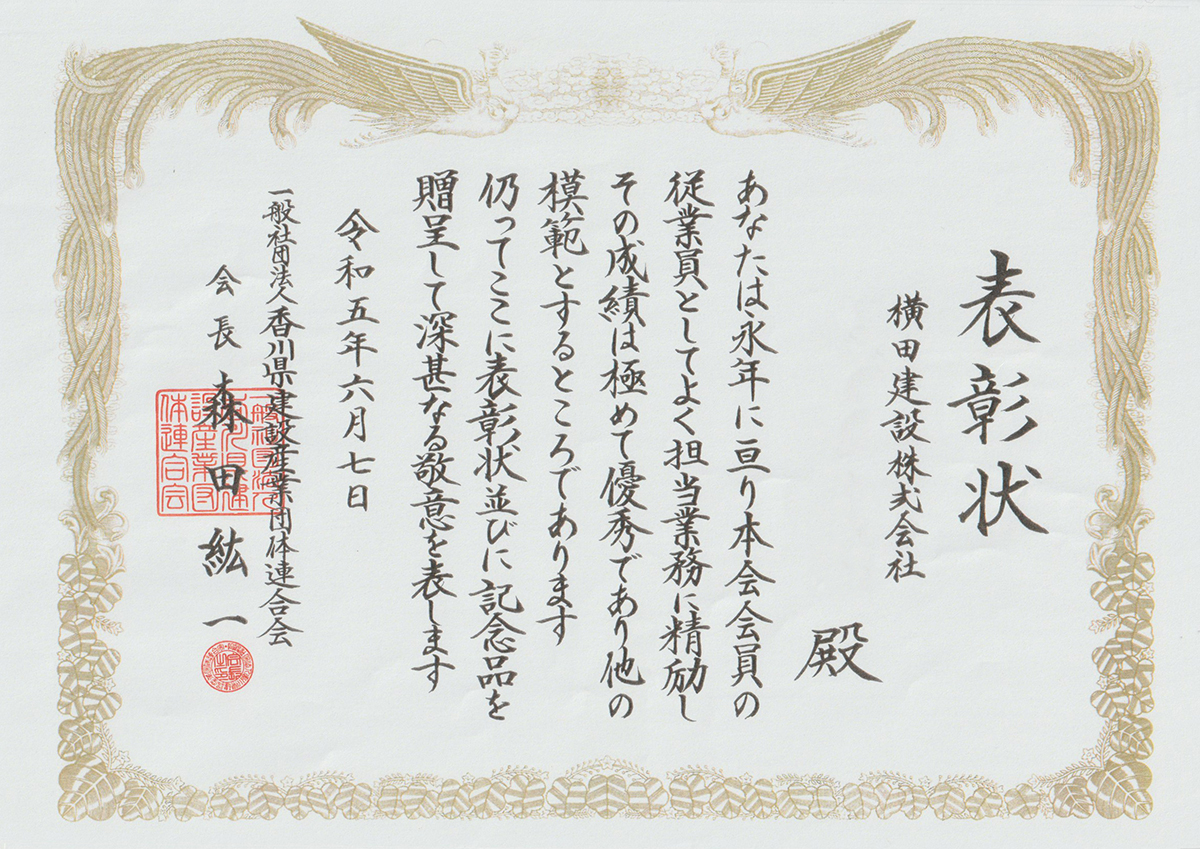 表彰状
横田建設株式会社
殿
あなたは永年に亘り本会会員の
従業員としてよく担当業務に精励し
その成績は極めて優秀であり他の
模範とするところであります
仍ってここに表彰状並びに記念品を
贈呈して深甚なる敬意を表します
令和五年六月七日
一般社団法人香川県建設産業団体連合会
会長 森田紘一